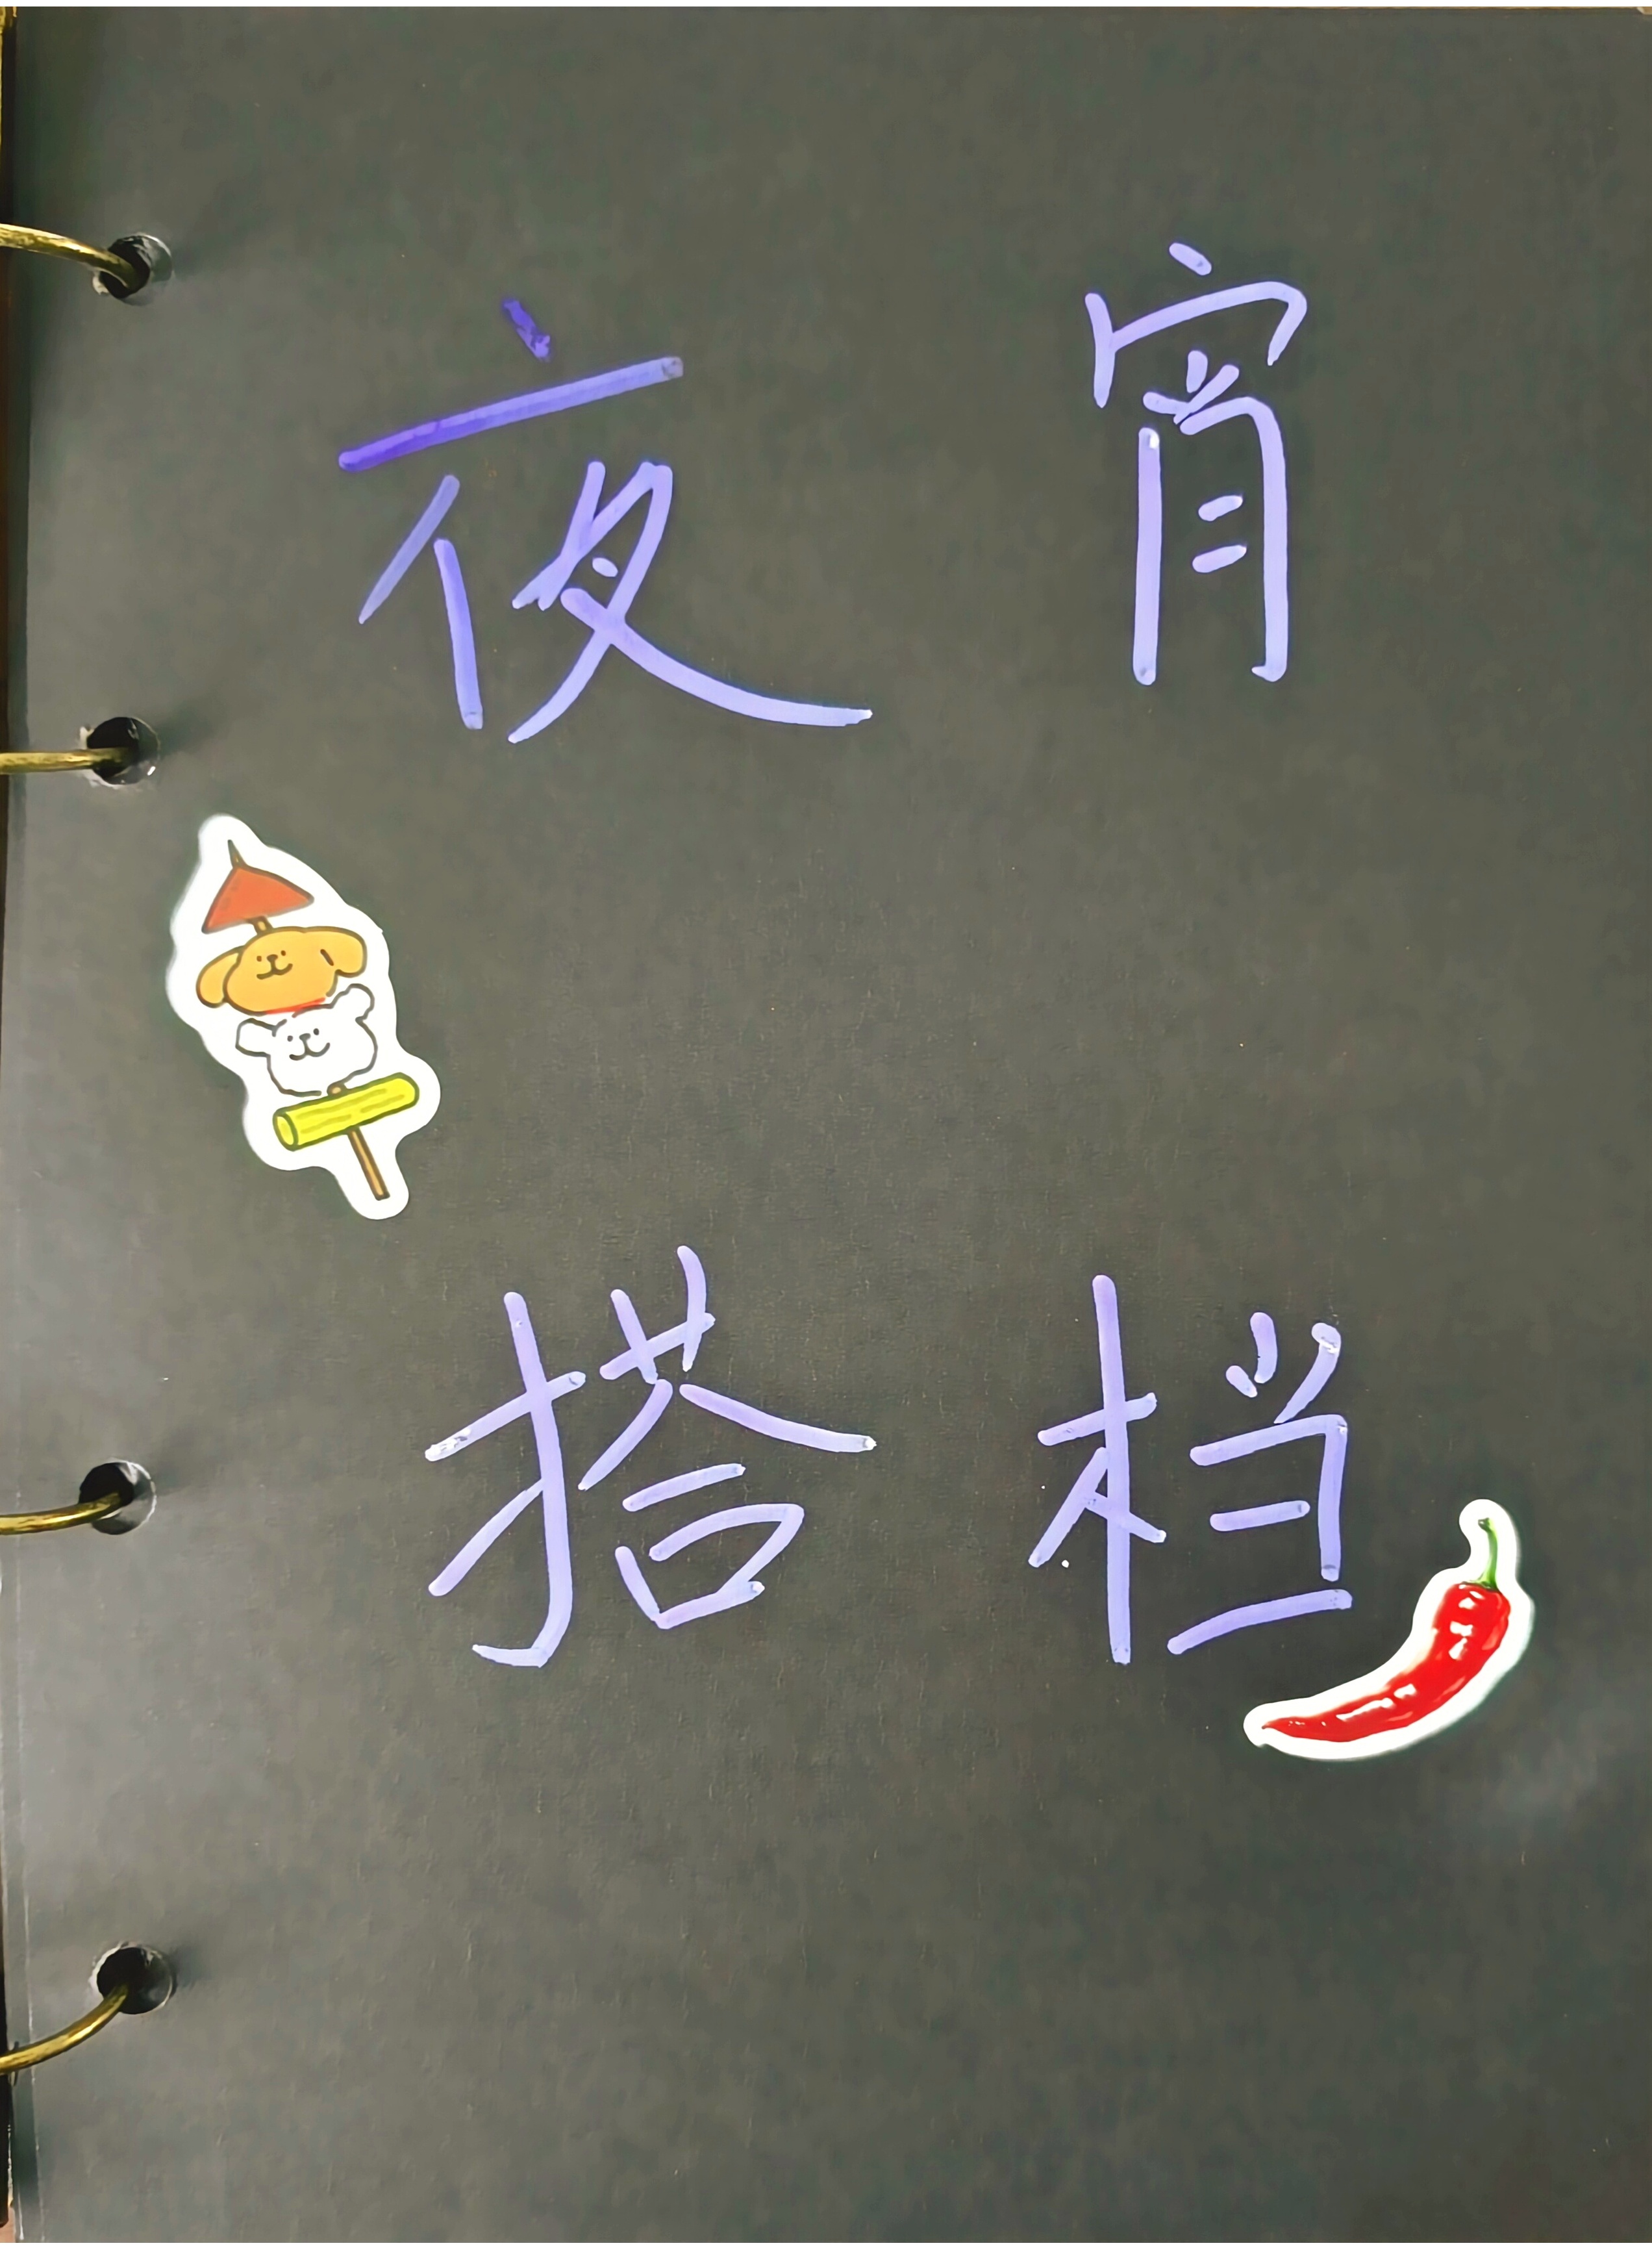 夜宵
搭档